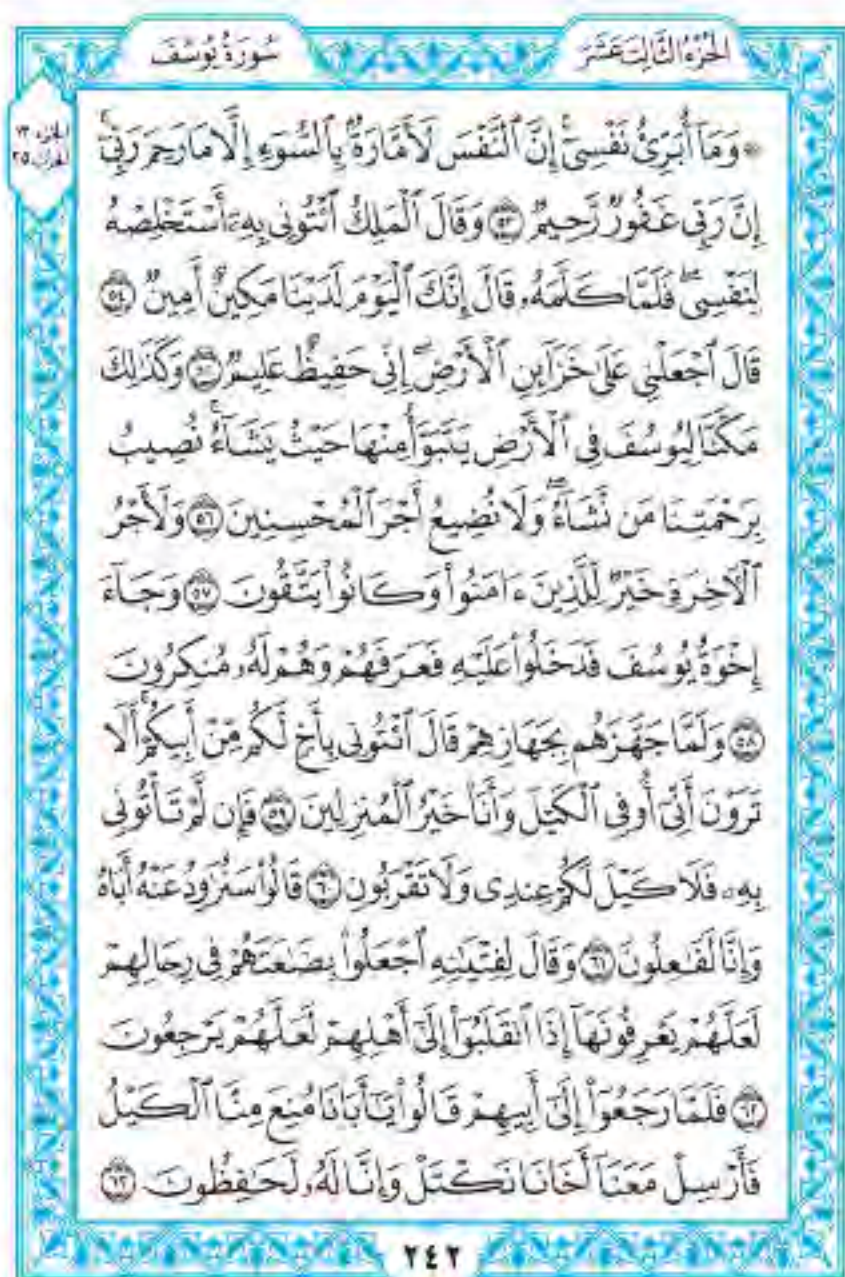 الجزء الثالث عشر
سورة يوسف
الجزء ١٣
الحزب ٢٥
۞ وَمَآ أُبَرِّئُ نَفْسِىٓ ۚ إِنَّ ٱلنَّفْسَ لَأَمَّارَةٌۢ بِٱلسُّوٓءِ إِلَّا مَا رَحِمَ رَبِّىٓ ۚ
إِنَّ رَبِّى غَفُورٌ رَّحِيمٌ ٥٣ وَقَالَ ٱلْمَلِكُ ٱئْتُونِى بِهِۦٓ أَسْتَخْلِصْهُ
لِنَفْسِى ۖ فَلَمَّا كَلَّمَهُۥ قَالَ إِنَّكَ ٱلْيَوْمَ لَدَيْنَا مَكِينٌ أَمِينٌ ٥٤
قَالَ ٱجْعَلْنِى عَلَىٰ خَزَآئِنِ ٱلْأَرْضِ ۖ إِنِّى حَفِيظٌ عَلِيمٌ ٥٥ وَكَذَٰلِكَ
مَكَّنَّا لِيُوسُفَ فِى ٱلْأَرْضِ يَتَبَوَّأُ مِنْهَا حَيْثُ يَشَآءُ ۚ نُصِيبُ
بِرَحْمَتِنَا مَن نَّشَآءُ ۖ وَلَا نُضِيعُ أَجْرَ ٱلْمُحْسِنِينَ ٥٦ وَلَأَجْرُ
ٱلْـَٔاخِرَةِ خَيْرٌ لِّلَّذِينَ ءَامَنُوا۟ وَكَانُوا۟ يَتَّقُونَ ٥٧ وَجَآءَ
إِخْوَةُ يُوسُفَ فَدَخَلُوا۟ عَلَيْهِ فَعَرَفَهُمْ وَهُمْ لَهُۥ مُنكِرُونَ
٥٨ وَلَمَّا جَهَّزَهُم بِجَهَازِهِمْ قَالَ ٱئْتُونِى بِأَخٍ لَّكُم مِّنْ أَبِيكُمْ ۚ أَلَا
تَرَوْنَ أَنِّىٓ أُوفِى ٱلْكَيْلَ وَأَنَا۠ خَيْرُ ٱلْمُنزِلِينَ ٥٩ فَإِن لَّمْ تَأْتُونِى
بِهِۦ فَلَا كَيْلَ لَكُمْ عِندِى وَلَا تَقْرَبُونِ ٦٠ قَالُوا۟ سَنُرَٰوِدُ عَنْهُ أَبَاهُ
وَإِنَّا لَفَٰعِلُونَ ٦١ وَقَالَ لِفِتْيَٰنِهِ ٱجْعَلُوا۟ بِضَٰعَتَهُمْ فِى رِحَالِهِمْ
لَعَلَّهُمْ يَعْرِفُونَهَآ إِذَا ٱنقَلَبُوٓا۟ إِلَىٰٓ أَهْلِهِمْ لَعَلَّهُمْ يَرْجِعُونَ
٦٢ فَلَمَّا رَجَعُوٓا۟ إِلَىٰٓ أَبِيهِمْ قَالُوا۟ يَٰٓأَبَانَا مُنِعَ مِنَّا ٱلْكَيْلُ
فَأَرْسِلْ مَعَنَآ أَخَانَا نَكْتَلْ وَإِنَّا لَهُۥ لَحَٰفِظُونَ ٦٣
٢٤٢